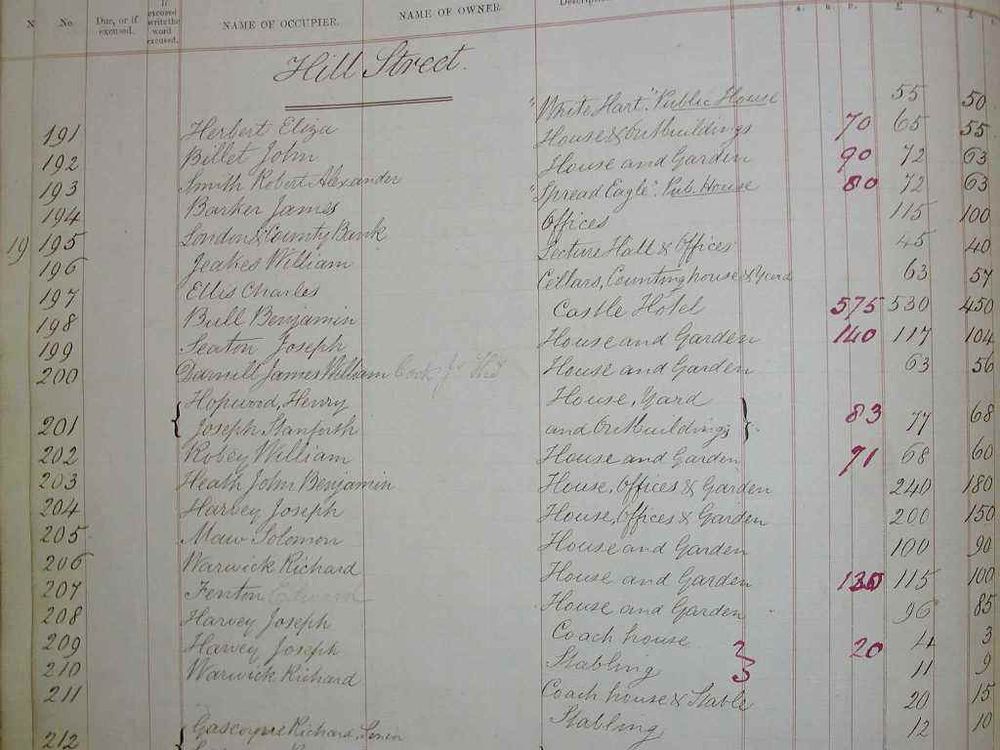 N No. Due, or if excused. If excused write the word excused. NAME OF OCCUPIER. NAME OF OWNER
Hill Street.
191 Herbert Eliza "White Hart" Public House 55 50
192 Billet John House & Outbuildings 70 65 55
193 Smith Robert Alexander House and Garden 90 72 63
194 Barker James "Spread Eagle" Pub. House 80 72 63
19 195 London & County Bank Offices 115 100
196 Jeakes William Lecture Hall & Offices 45 40
197 Ellis Charles Cellars, Counting house & Yard 63 57
198 Bull Benjamin Castle Hotel 575 530 450
199 Seaton Joseph House and Garden 140 117 104
200 Darnill James William House and Garden 63 56
Hopwood, Henry House, Yard
201 Joseph Stanforth and Outbuildings 83 77 68
202 Robey William House and Garden 71 68 60
203 Heath John Benjamin House, Offices & Garden 240 180
204 Harvey Joseph House, Offices & Garden 200 150
205 Maw Solomon House and Garden 100 90
206 Warwick Richard House and Garden 130 115 100
207 Fenton Edward House and Garden 96 85
208 Harvey Joseph Coach house 4 3
209 Harvey Joseph Stabling 20 11 9
210 Warwick Richard Coach house & Stable 20 15
211 Stabling 12 10
212 Richard